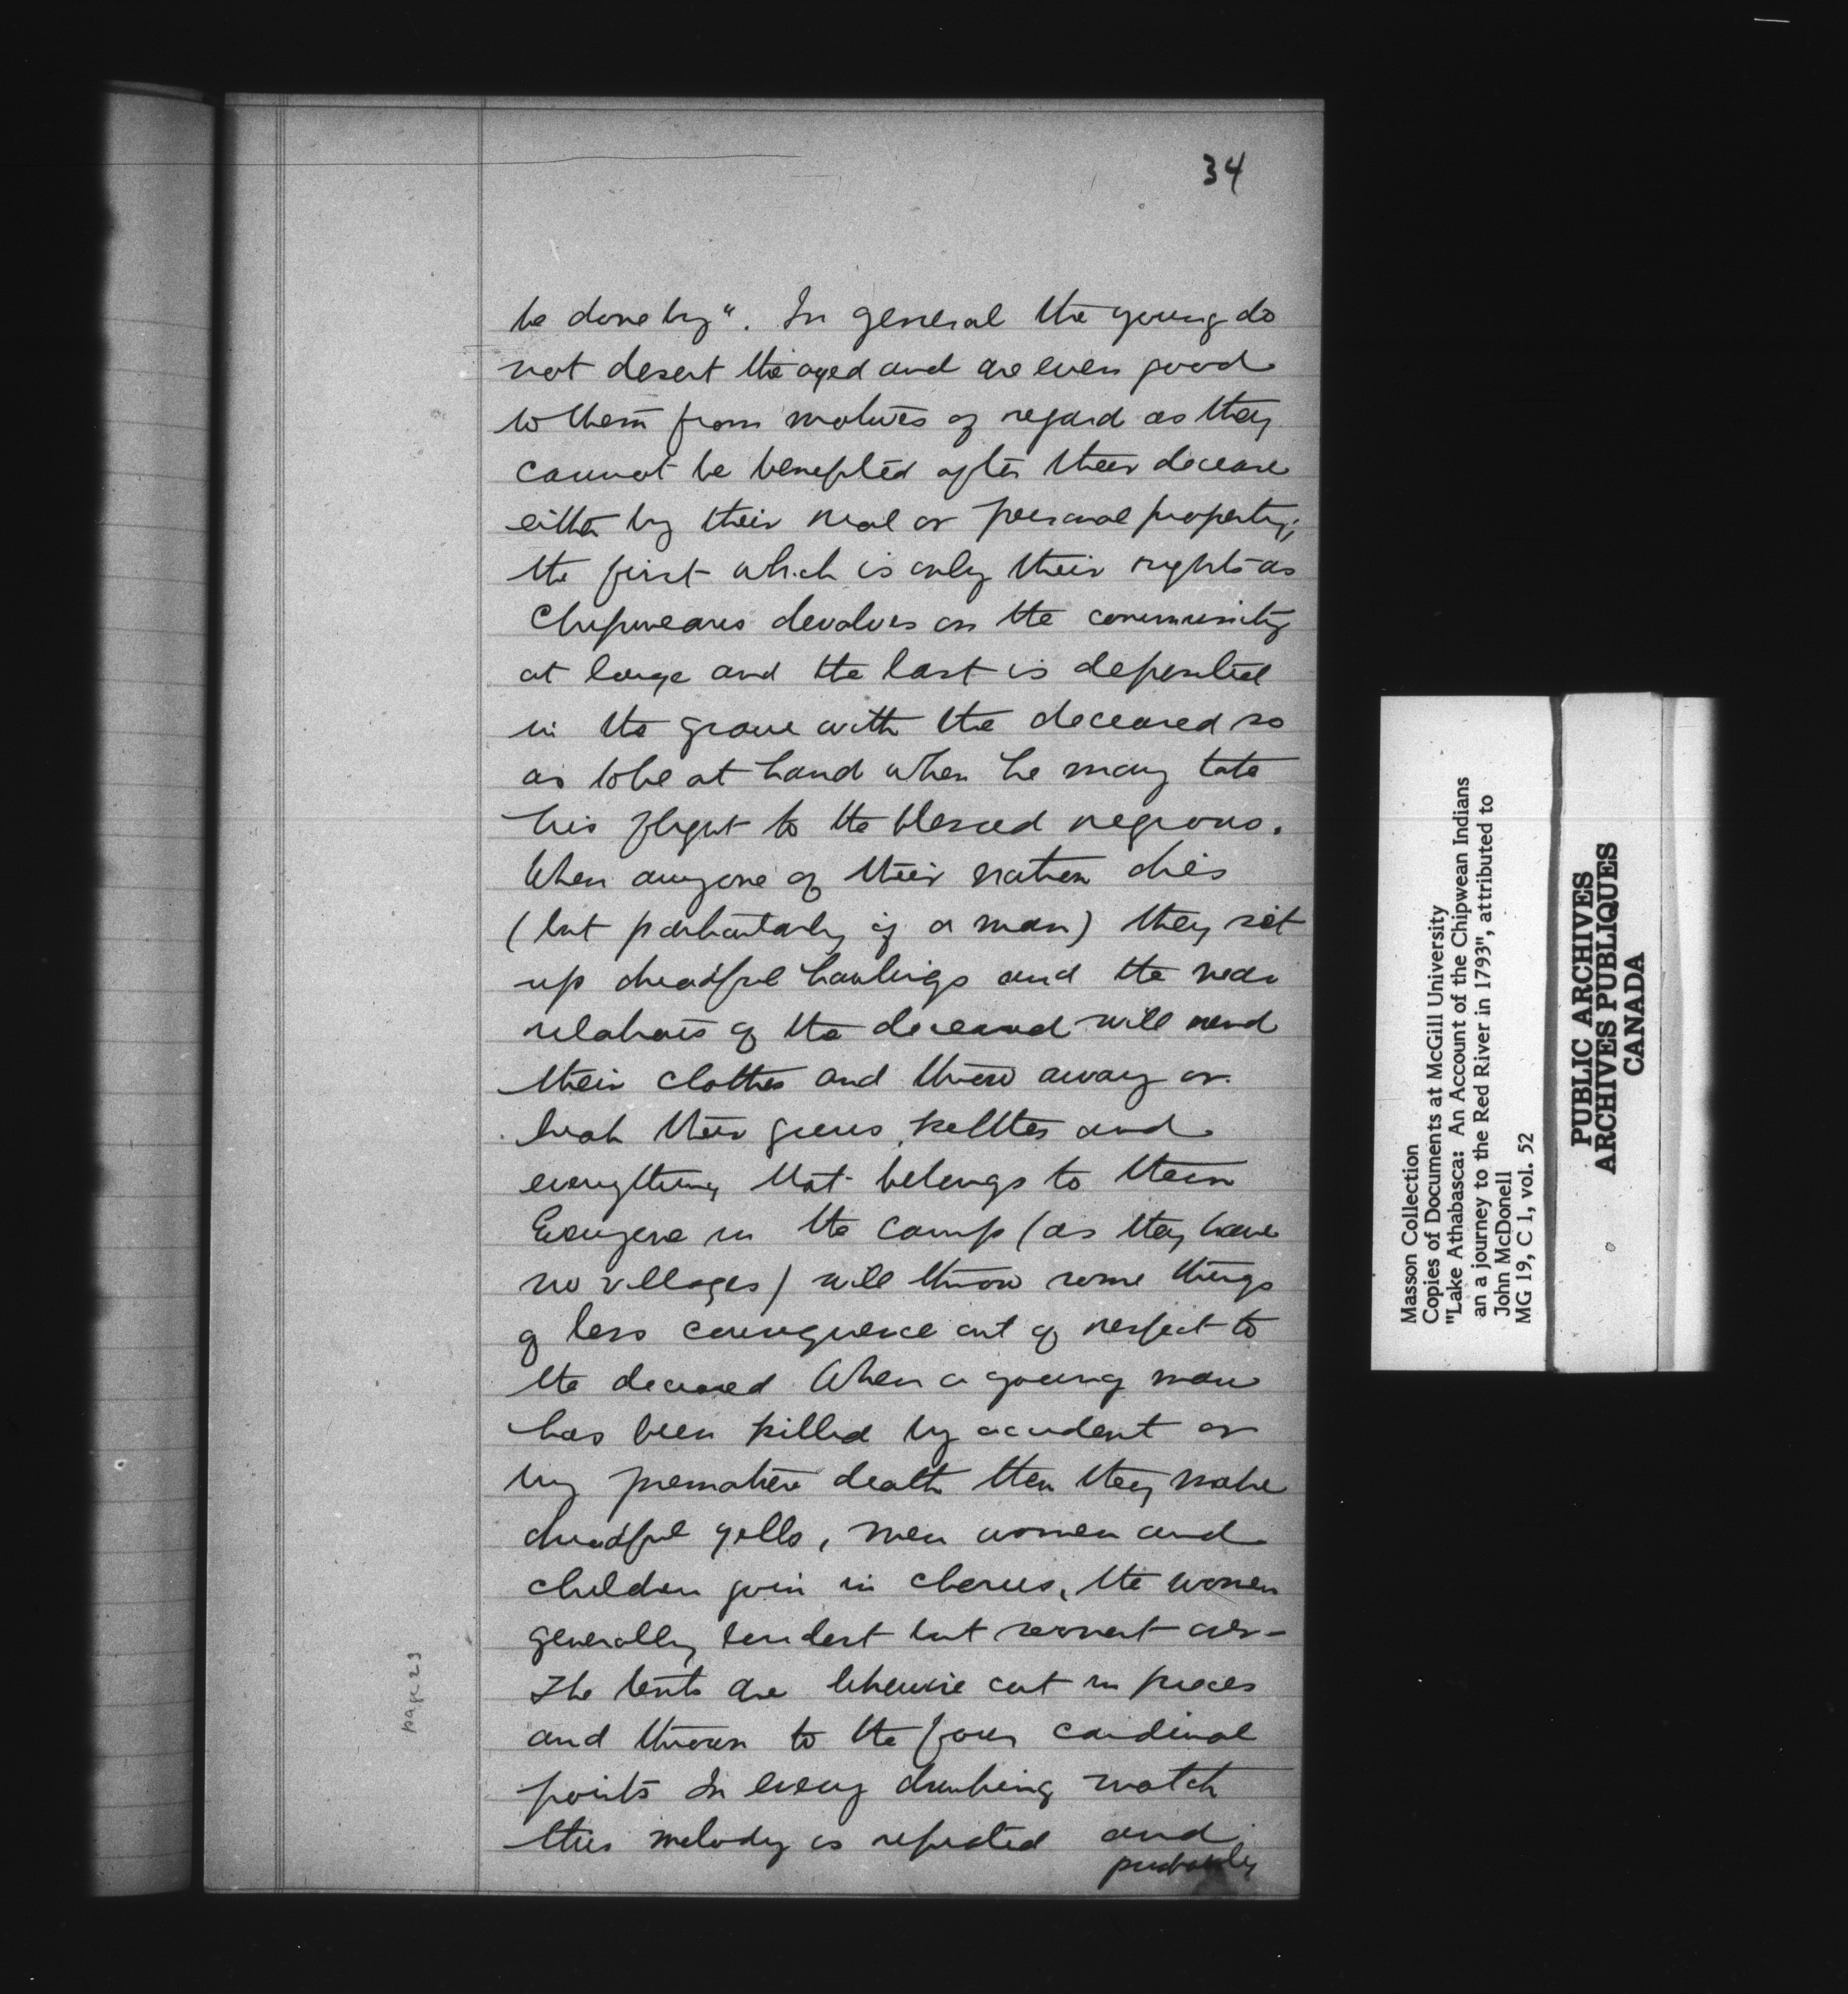 34
be done by". In general the young do
not desert the aged and are even good
to them from motives of regard as they
cannot be benefited after their decease
either by their real or personal property;
the first which is only their rights as
Chipweans devolves on the community
at large and the last is deposited
in the grave with the deceased so
as to be at hand when he may take
his flight to the blessed regions.
When anyone of their nation dies
(but particularly if a man) they set
up dreadful howlings and the near
relations of the deceased will rend
their clothes and throw away or
break their guns, kettles and
everything that belongs to them
Everyone in the camp (as they have
no villages) will throw some things
of less consequence out of respect to
the deceased When a young man
has been killed by accident or
by premature death then they make
dreadful yells, men women and
children join in chorus, the women
generally loudest but soonest over -
The tents are likewise cut in pieces
and thrown to the four cardinal
points In every drinking match
this melody is repeated and
probably
page 23
Masson Collection
Copies of Documents at McGill University
"Lake Athabasca: An Account of the Chipwean Indians
an a journey to the Red River in 1793", attributed to
John McDonell
MG 19, C 1, vol. 52
PUBLIC ARCHIVES
ARCHIVES PUBLIQUES
CANADA